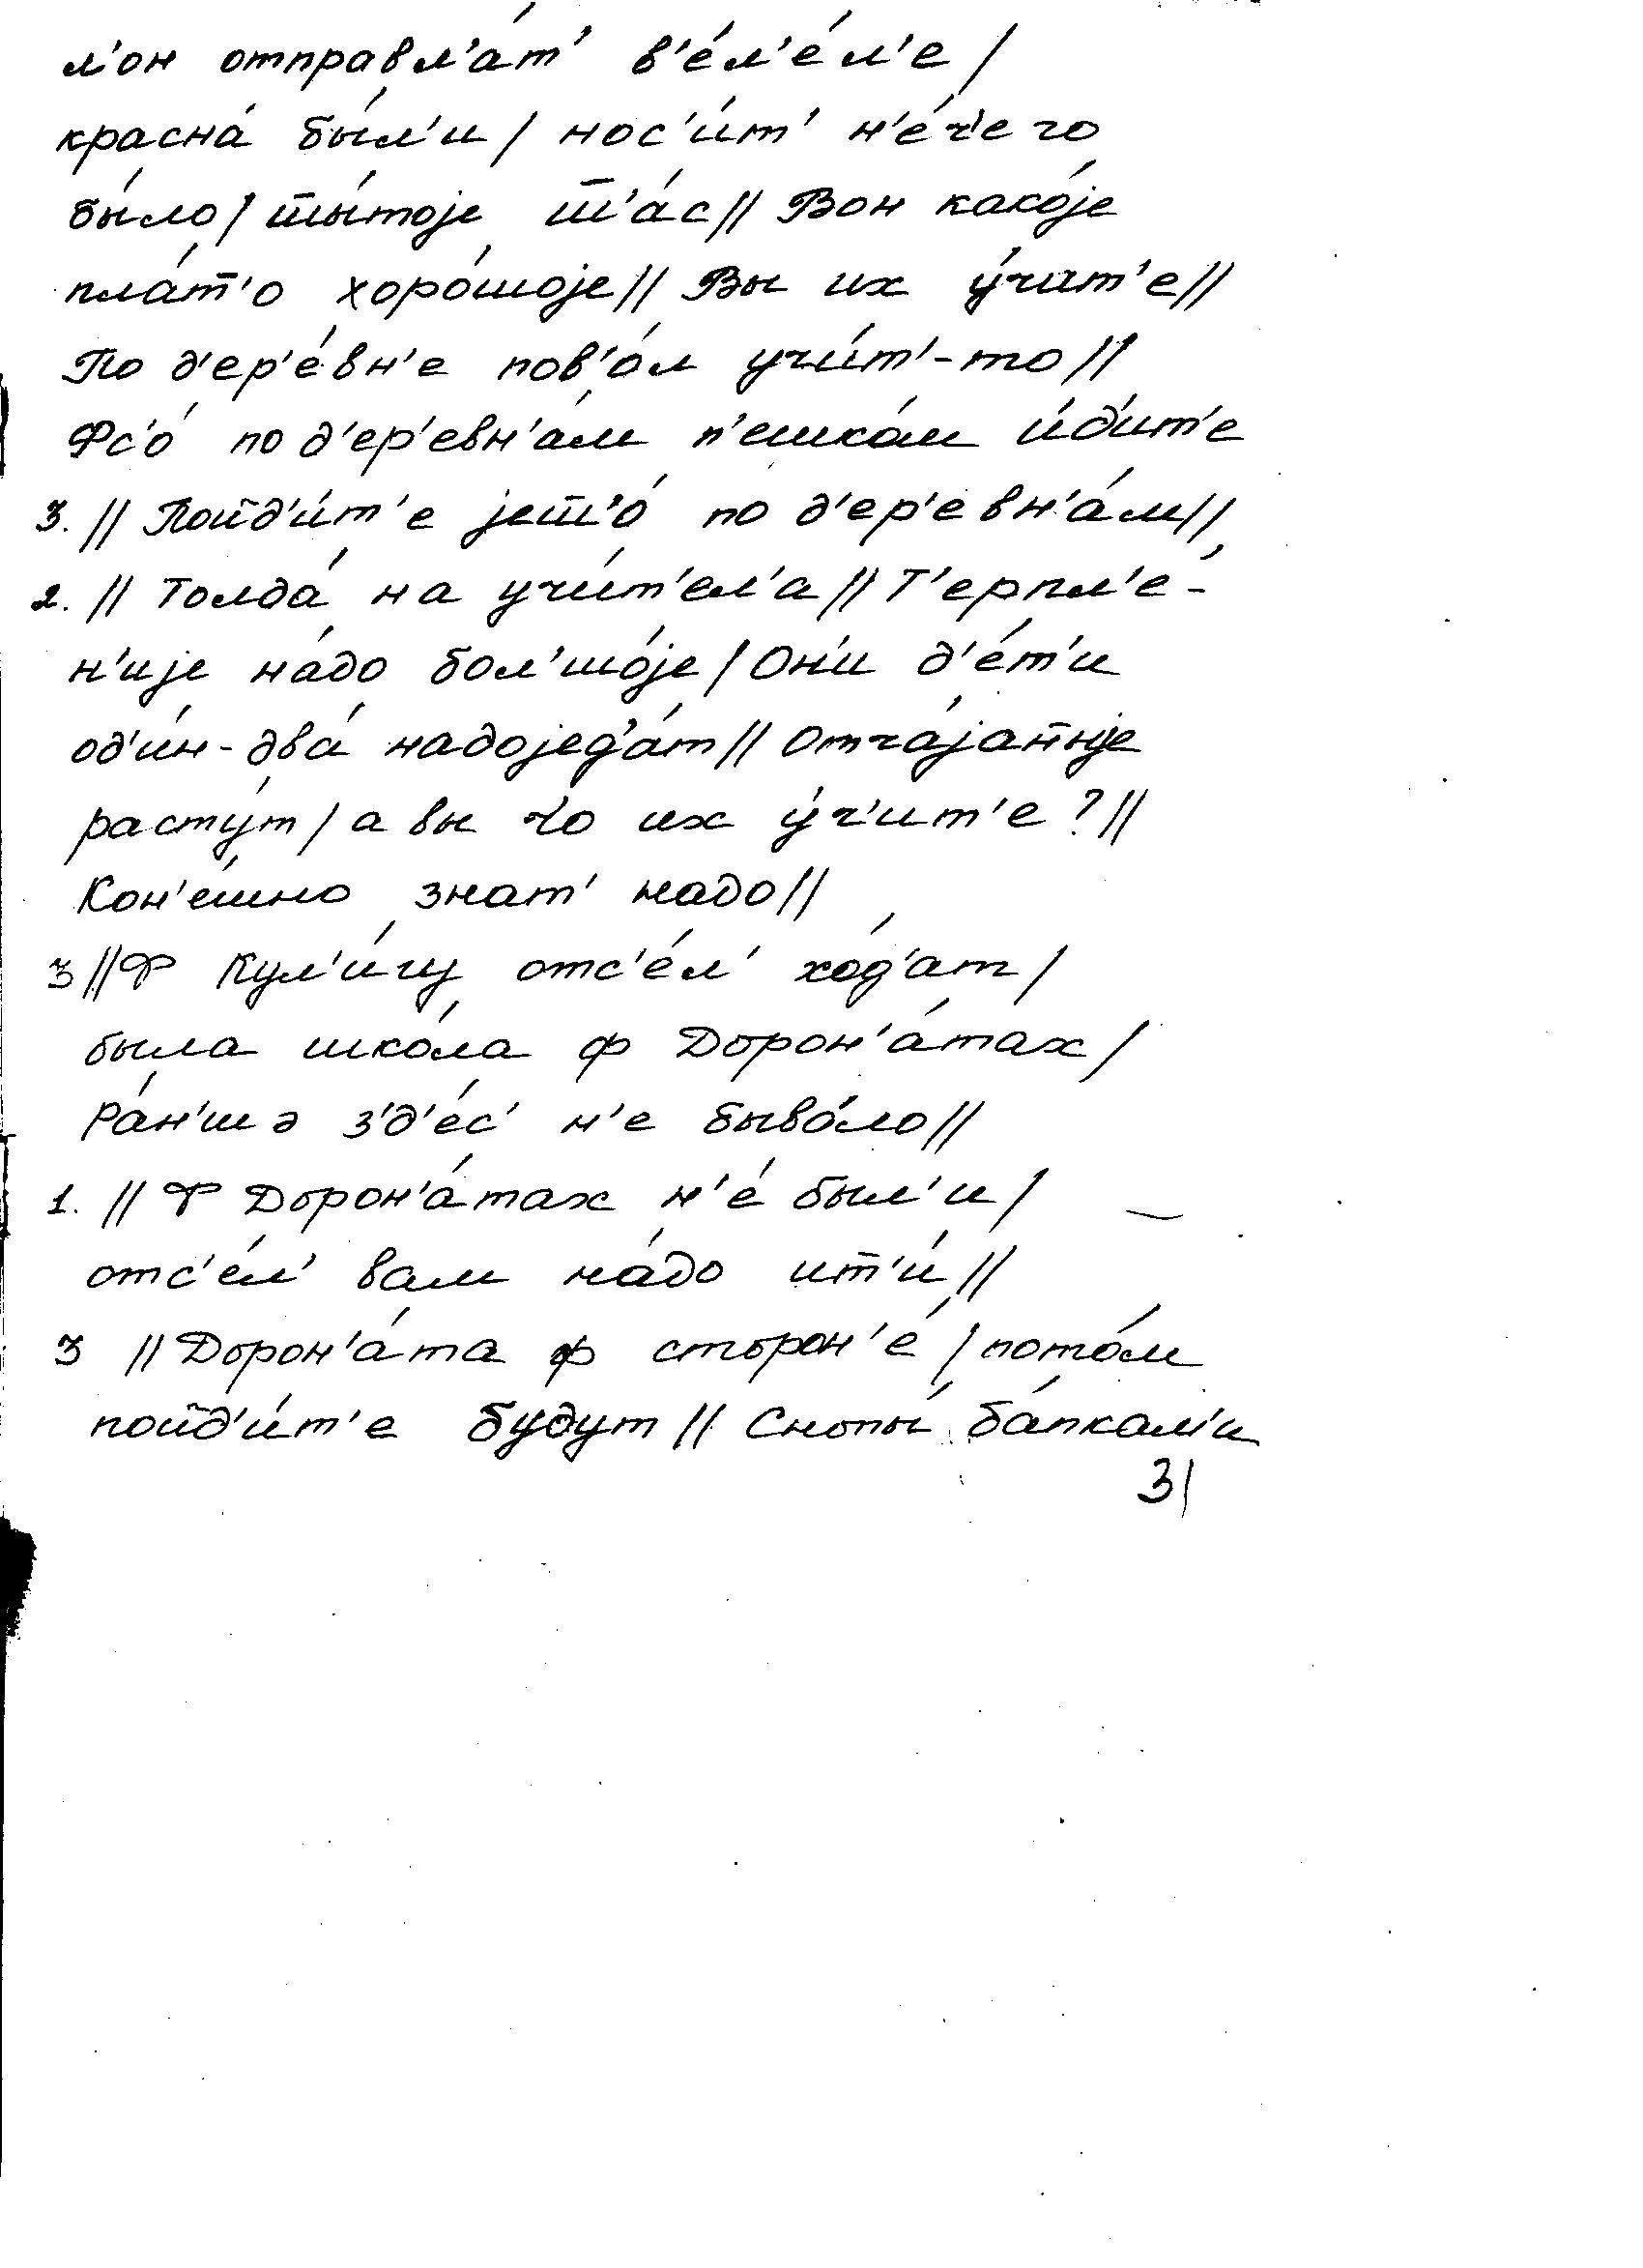 л'он отправл'а́т' в'е́л'е́л'е /
красна́ бы́л'и / нос'и́т' н'е́ч'его
бы́ло / т̅ы́тоје т̅'а́с // Вон како́је
пла́т̅'о хоро́шоје // Вы их у́чит'е //
По д'ер'е́вн'е пов'о́л учи́т'-то //
Фс'о́ по д'ер'евн'а́м п'ешко́м и́д'ит'е
3. // Пойд'и́т'е јет̅'о́ по д'ер'евн'а́м //
2. // Толда́ на учи́т'ел'а // Т'ерпл'е́-
н'ије на́до бол'шо́је / Он'и д'е́т'и
од'и́н-два́ надојед'а́т // Отча́јан̅ыје
расту́т / а вы чо их у́ч'ит'е ? //
Кон'е́шно знат' надо //
3 // Ф Кул'и́гу отс'е́л' хо́д'ат /
была шко́ла ф Дорон'а́тах /
Ра́н'шə з'д'е́с' н'е быва́ло //
1. // Ф Дорон'а́тах н'е́ был'и /
отс'е́л' вам на́до ит̅'и́ //
3 // Дорон'а́та ф сторон'е́ / пото́м
пойд'и́т'е будут // Снопы́ ба́пкам'и
31